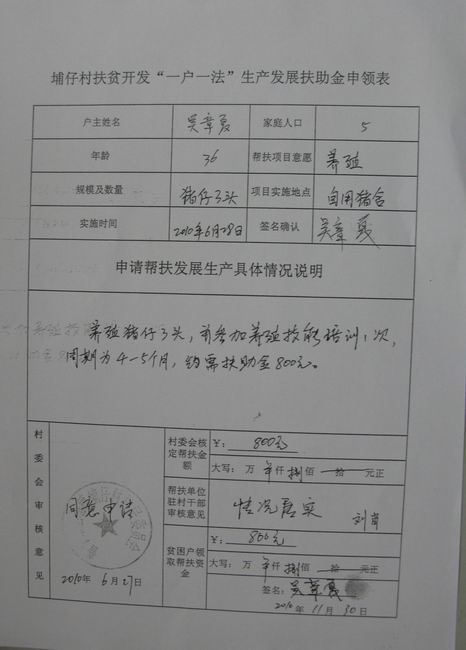 埔仔村扶贫开发“一户一法”生产发展扶助金申领表
户主姓名 吴章夏 家庭人口 5
年龄 36 帮扶项目意愿 养殖
规模及数量 猪仔3头 项目实施地点 自用猪舍
实施时间 2010年6月28日 签名确认 吴章夏
申请帮扶发展生产具体情况说明
养殖猪仔3头,并参加养殖技能培训1次,
周期为4-5个月,约需扶助金800元。
村委会审核意见
同意申请
2010年 6月27日
村委会核定帮扶金额
¥: 800元
大写: 万 仟 捌佰 拾 元正
帮扶单位驻村干部审核意见
情况属实
贫困户领取帮扶资金
¥: 800元
大写: 万 仟 捌佰 拾 元正
签名: 吴章夏
2010年 11月 30日